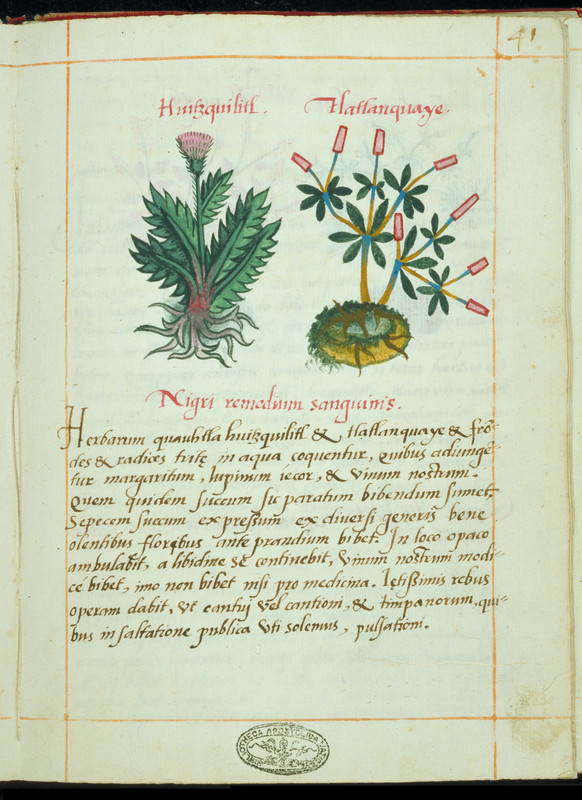 41
Huitzquilitl. Tlatlanquaye.
Nigri remedium sanguinis.
Herbarum quauhtla huitzquilitl & tlatlanquaye & frō-
des & radices tritę in aqua coquentur, quibus adiunge-
tur margaritum, lupinum iecor, & vinum nostrum.
Quem quidem succum sic paratum bibendum sumet.
Sepecem succum expressum ex diversi generis bene
olentibus floribus ante prandium bibet. In loco opaco
ambulabit, a libidine se continebit, vinum nostrum modi-
ce bibet, imo non bibet nisi pro medicina. Lętissimis rebus
operam dabit, vt cantui vel cantioni, & timpanorum, qui-
bus in saltatione publica vti solemus, pulsationi.